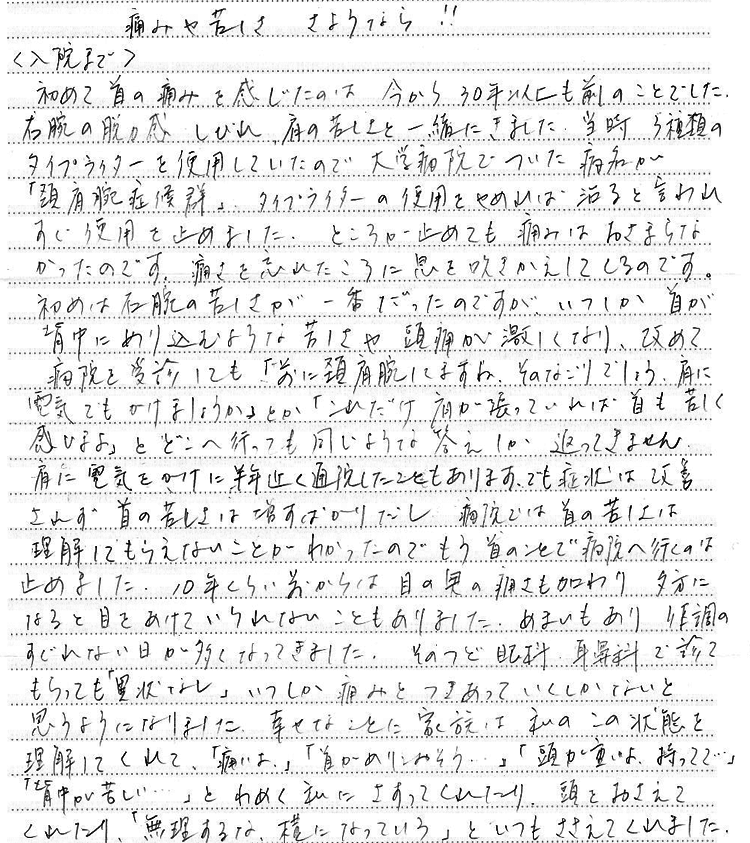 痛みや苦しさ さようなら!!
<入院まで>
初めて首の痛みを感じたのは 今から30年以上も前のことでした.
右腕の脱力感 しびれ、肩の苦しさと一緒にきました. 当時 3種類の
タイプライターを使用していたので 大学病院でついた病名が
「頸肩腕症候群」. タイプライターの使用をやめれば治ると言われ
すぐ使用を止めました. ところが止めても痛みはおさまらな
かったのです. 痛さを忘れたころに息を吹きかえしてくるのです。
初めは右腕の苦しさが一番だったのですが、いつしか首が
背中にめり込むような苦しさや 頭痛が激しくなり、改めて
病院を受診しても「前に頸肩腕してますね、そのなごりでしょう、肩に
電気でもかけましょうか」とか「これだけ肩が張っていれば首も苦しく
感じますよ」とどこへ行っても同じような答えしか返ってきません.
肩に電気をかけに半年近く通院したこともあります、でも症状は改善
されず 首の苦しさは増すばかりだし 病院では首の苦しさは
理解してもらえないことがわかったのでもう首のことで病院へ行くのは
止めました. 10年くらい前からは目の奥の痛さも加わり 夕方に
なると目をあけていられないこともありました. めまいもあり 体調の
すぐれない日が多くなってきました. そのつど眼科 耳鼻科で診て
もらっても「異状なし」いつしか痛みとつきあっていくしかないと
思うようになりました. 幸せなことに家族は私のこの状態を
理解してくれて、「痛いよ.」「首がめりこみそう…」「頭が重いよ. 持ってて…」
「背中が苦しい…」とわめく私にさすってくれたり、頭をおさえて
くれたり、「無理するな、横になっていろ」といつもささえてくれました.